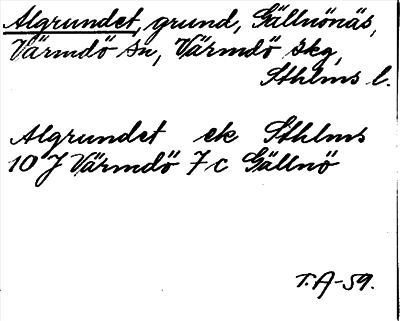 Algrundet, grund, Gällnönäs,
Värmdö sn, Värmdö skg,
Sthlms l.
Algrundet ek Sthlms
10 J Värmdö 7 c Gällnö
T.A-59.